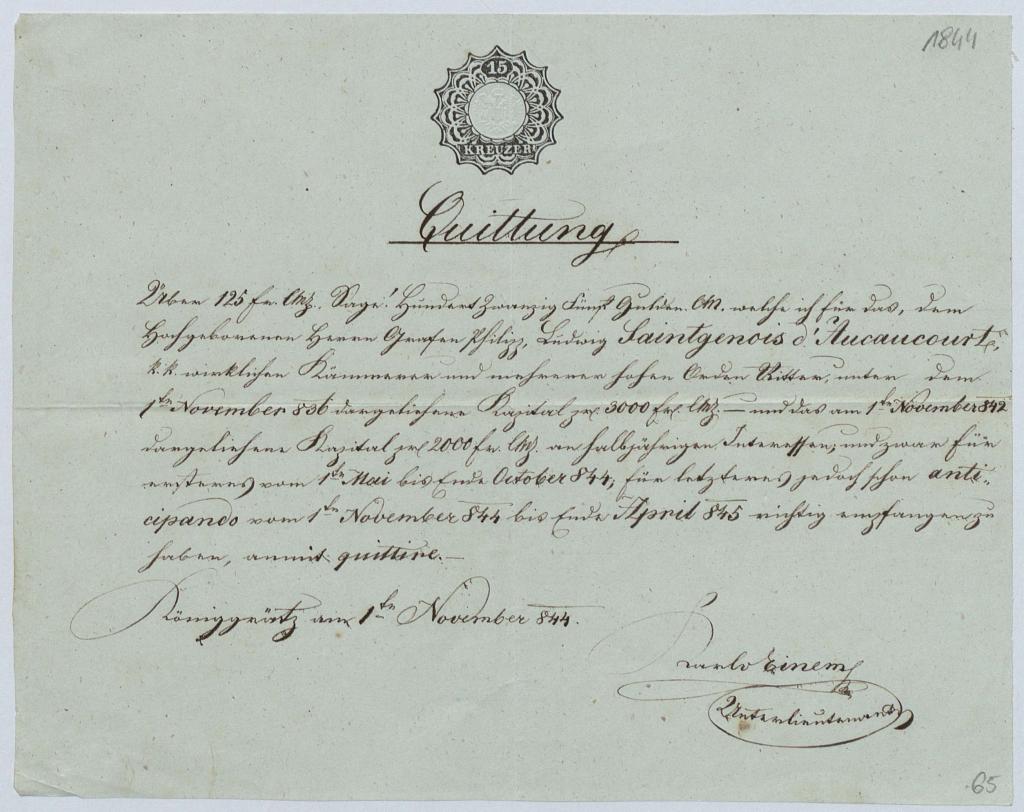 1844
15
KREUZER
Quittung
Über 125 fr. CMz. Sage! Hundert Zwanzig Fünf Gulden CM. welche ich für das, dem
Hochgeborenen Herrn Grafen Philipp, Ludwig Saintgenois d'Aneaucourt,
k. k. wirklichen Kämmerer und mehrerer hohen Orden Ritter, unter dem
1ten November 836 dargeliehene Kapital pr 3000 fr. CMz. – und das am 1ten November 842
dargeliehene Kapital pr 2000 fr. CMz. an halbjährigen Interessen; und zwar für
ersteres vom 1ten Mai bis Ende October 844, für letzteres jedoch schon anti-
cipando vom 1ten November 844 bis Ende April 845 richtig empfangen zu
haben, anmit quittire. –
Königgrätz am 1ten November 844.
Karl Einem
Unterlieutenant
65